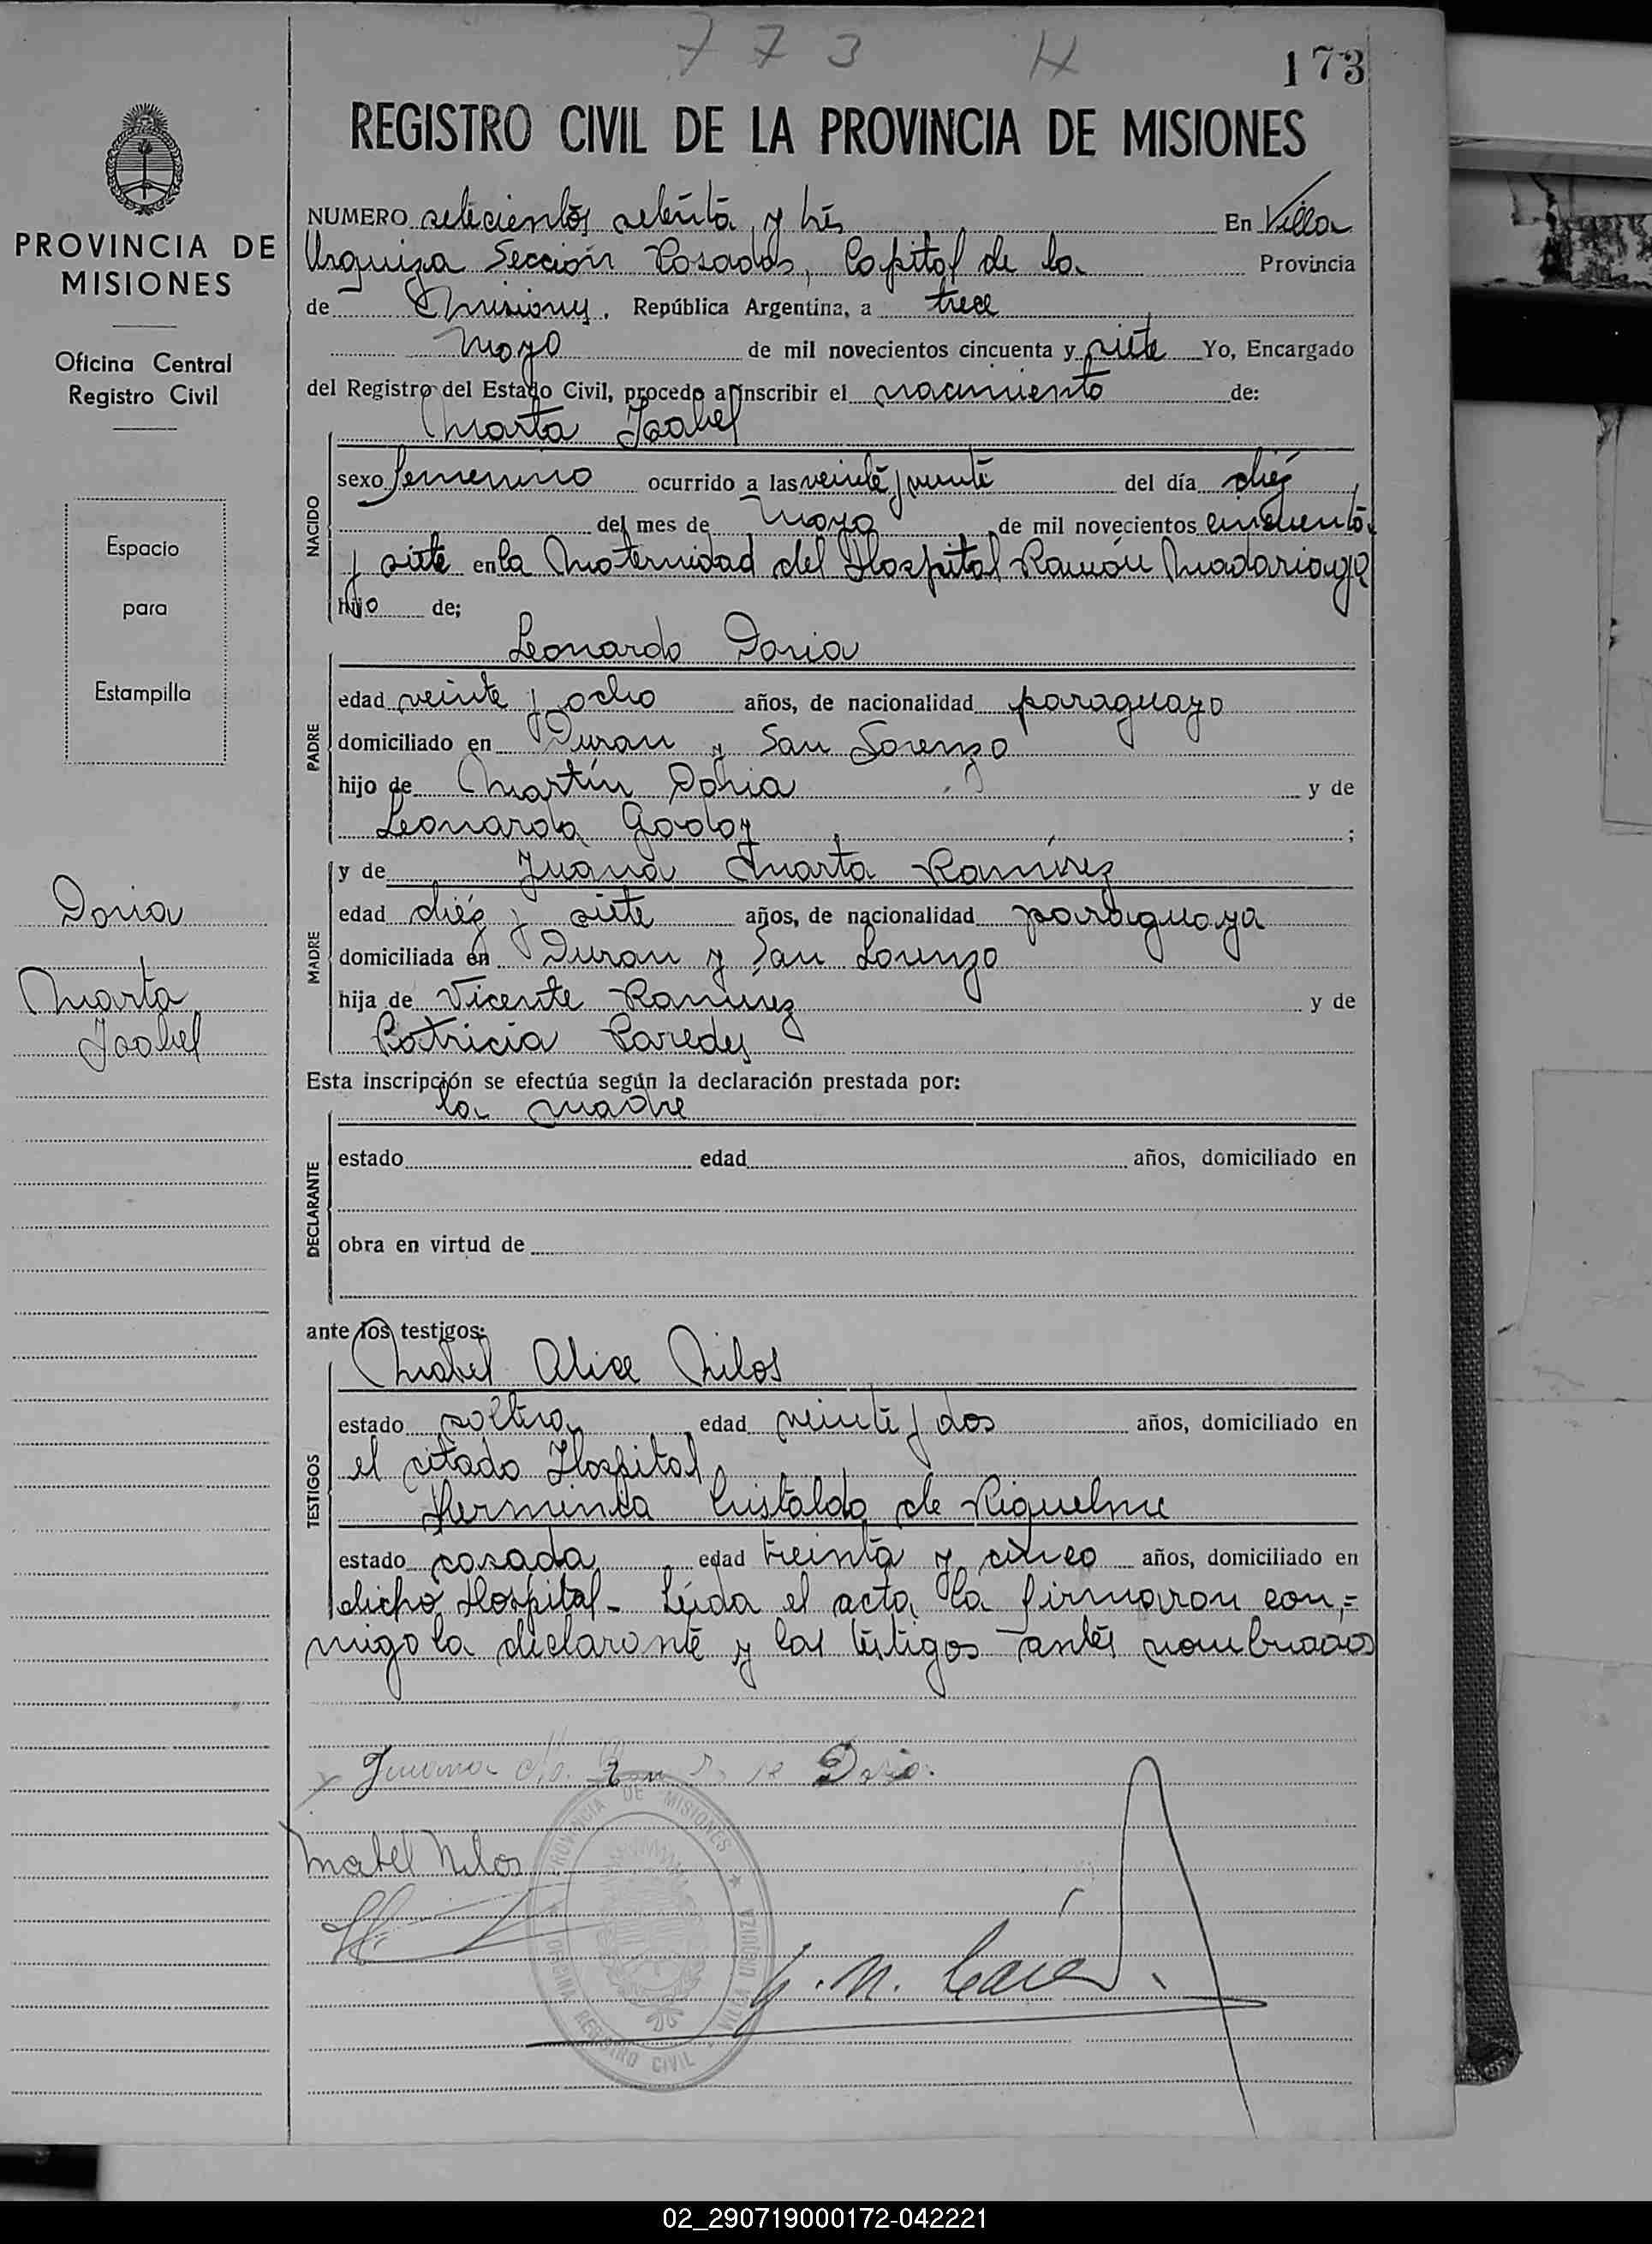 773 H
173
REGISTRO CIVIL DE LA PROVINCIA DE MISIONES
PROVINCIA DE
MISIONES
Oficina Central
Registro Civil
Espacio
para
Estampilla
Doria
Marta
Isabel
NUMERO setecientos setenta y tres En Villa
Urquiza Sección Posadas, Capital de la Provincia
de Misiones, República Argentina, a trece
Mayo de mil novecientos cincuenta y siete Yo, Encargado
del Registro del Estado Civil, procedo a inscribir el nacimiento de:
Marta Isabel
NACIDO
sexo femenino ocurrido a las veinte y veinte del día diéz
del mes de Mayo de mil novecientos cincuenta
y siete en la Maternidad del Hospital Ramón Madariaga
hijo de;
Leonardo Doria
PADRE
edad veinte y ocho años, de nacionalidad paraguayo
domiciliado en Duran y San Lorenzo
hijo de Martín Doria y de
Leonarda Godoy ;
y de Juana Marta Ramírez
MADRE
edad diéz y siete años, de nacionalidad paraguaya
domiciliada en Duran y San Lorenzo
hija de Vicente Ramirez y de
Patricia Paredes
Esta inscripción se efectúa según la declaración prestada por:
la madre
DECLARANTE
estado edad años, domiciliado en
obra en virtud de
ante los testigos:
Mabel Alice Nilos
TESTIGOS
estado soltera edad veinte y dos años, domiciliado en
el citado Hospital
Herminia Cristaldo de Riquelme
estado casada edad treinta y cinco años, domiciliado en
dicho Hospital- Leída el acta la firmaron con,=
migo la declarante y los testigos antes nombrados
Juana de Doria.
Mabel Nilos
PROVINCIA DE MISIONES ★ VILLA URQUIZA
OFICINA REGISTRO CIVIL
02_290719000172-042221